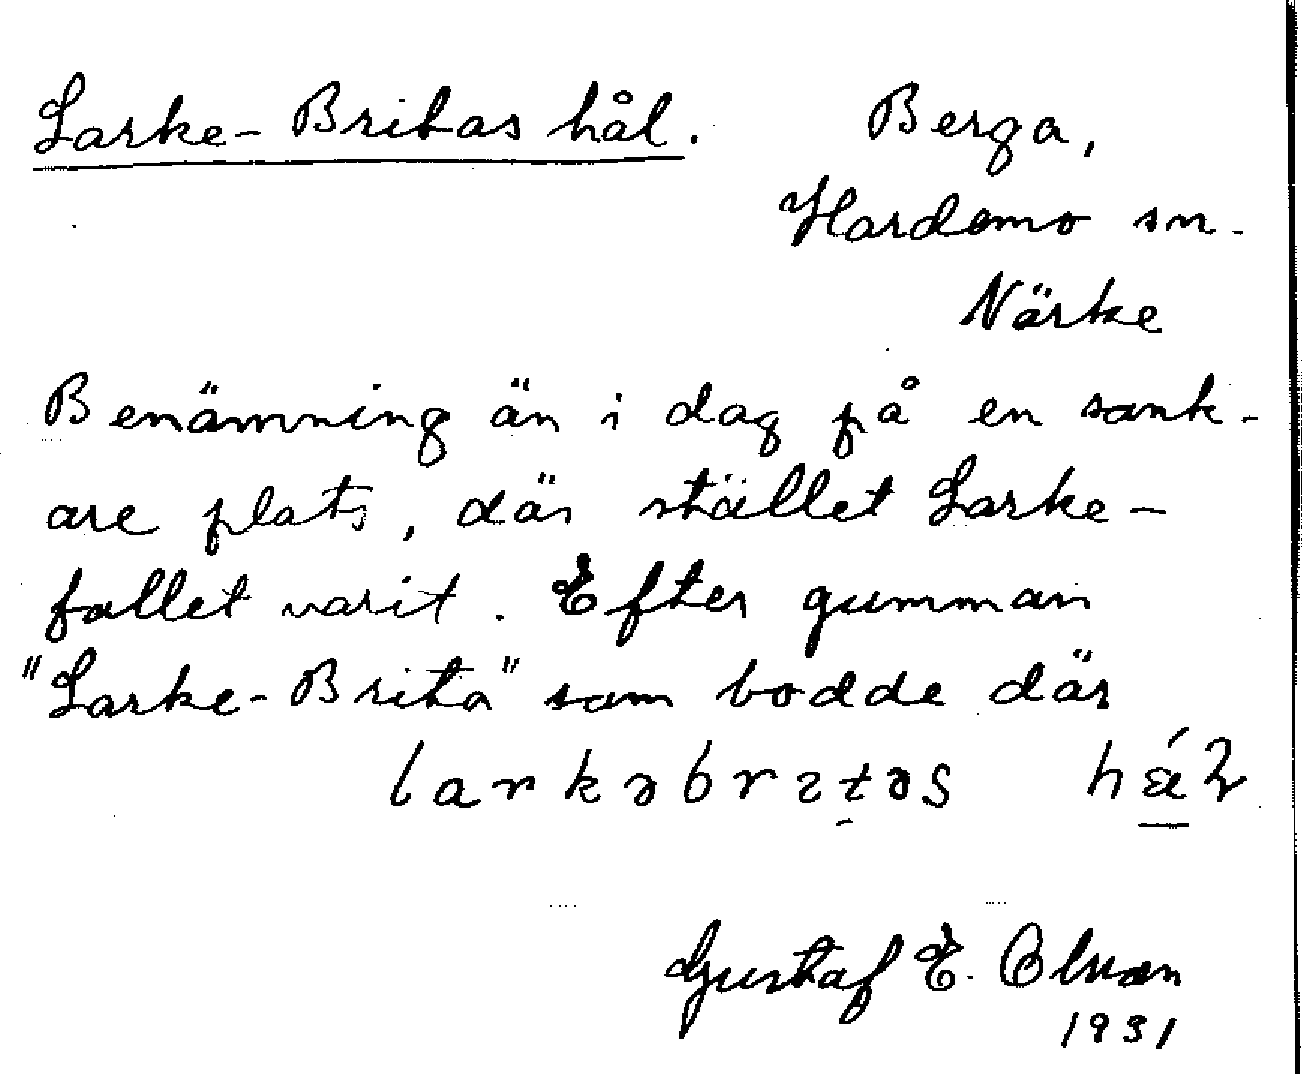 Larke-Britas hål. Berga,
Hardemo sn.
Närke
Benämning än i dag på en sank-
are plats, där stället Larke-
fallet varit. Efter gumman
"Larke-Brita" som bodde där
Gustaf E. Olsson
1931